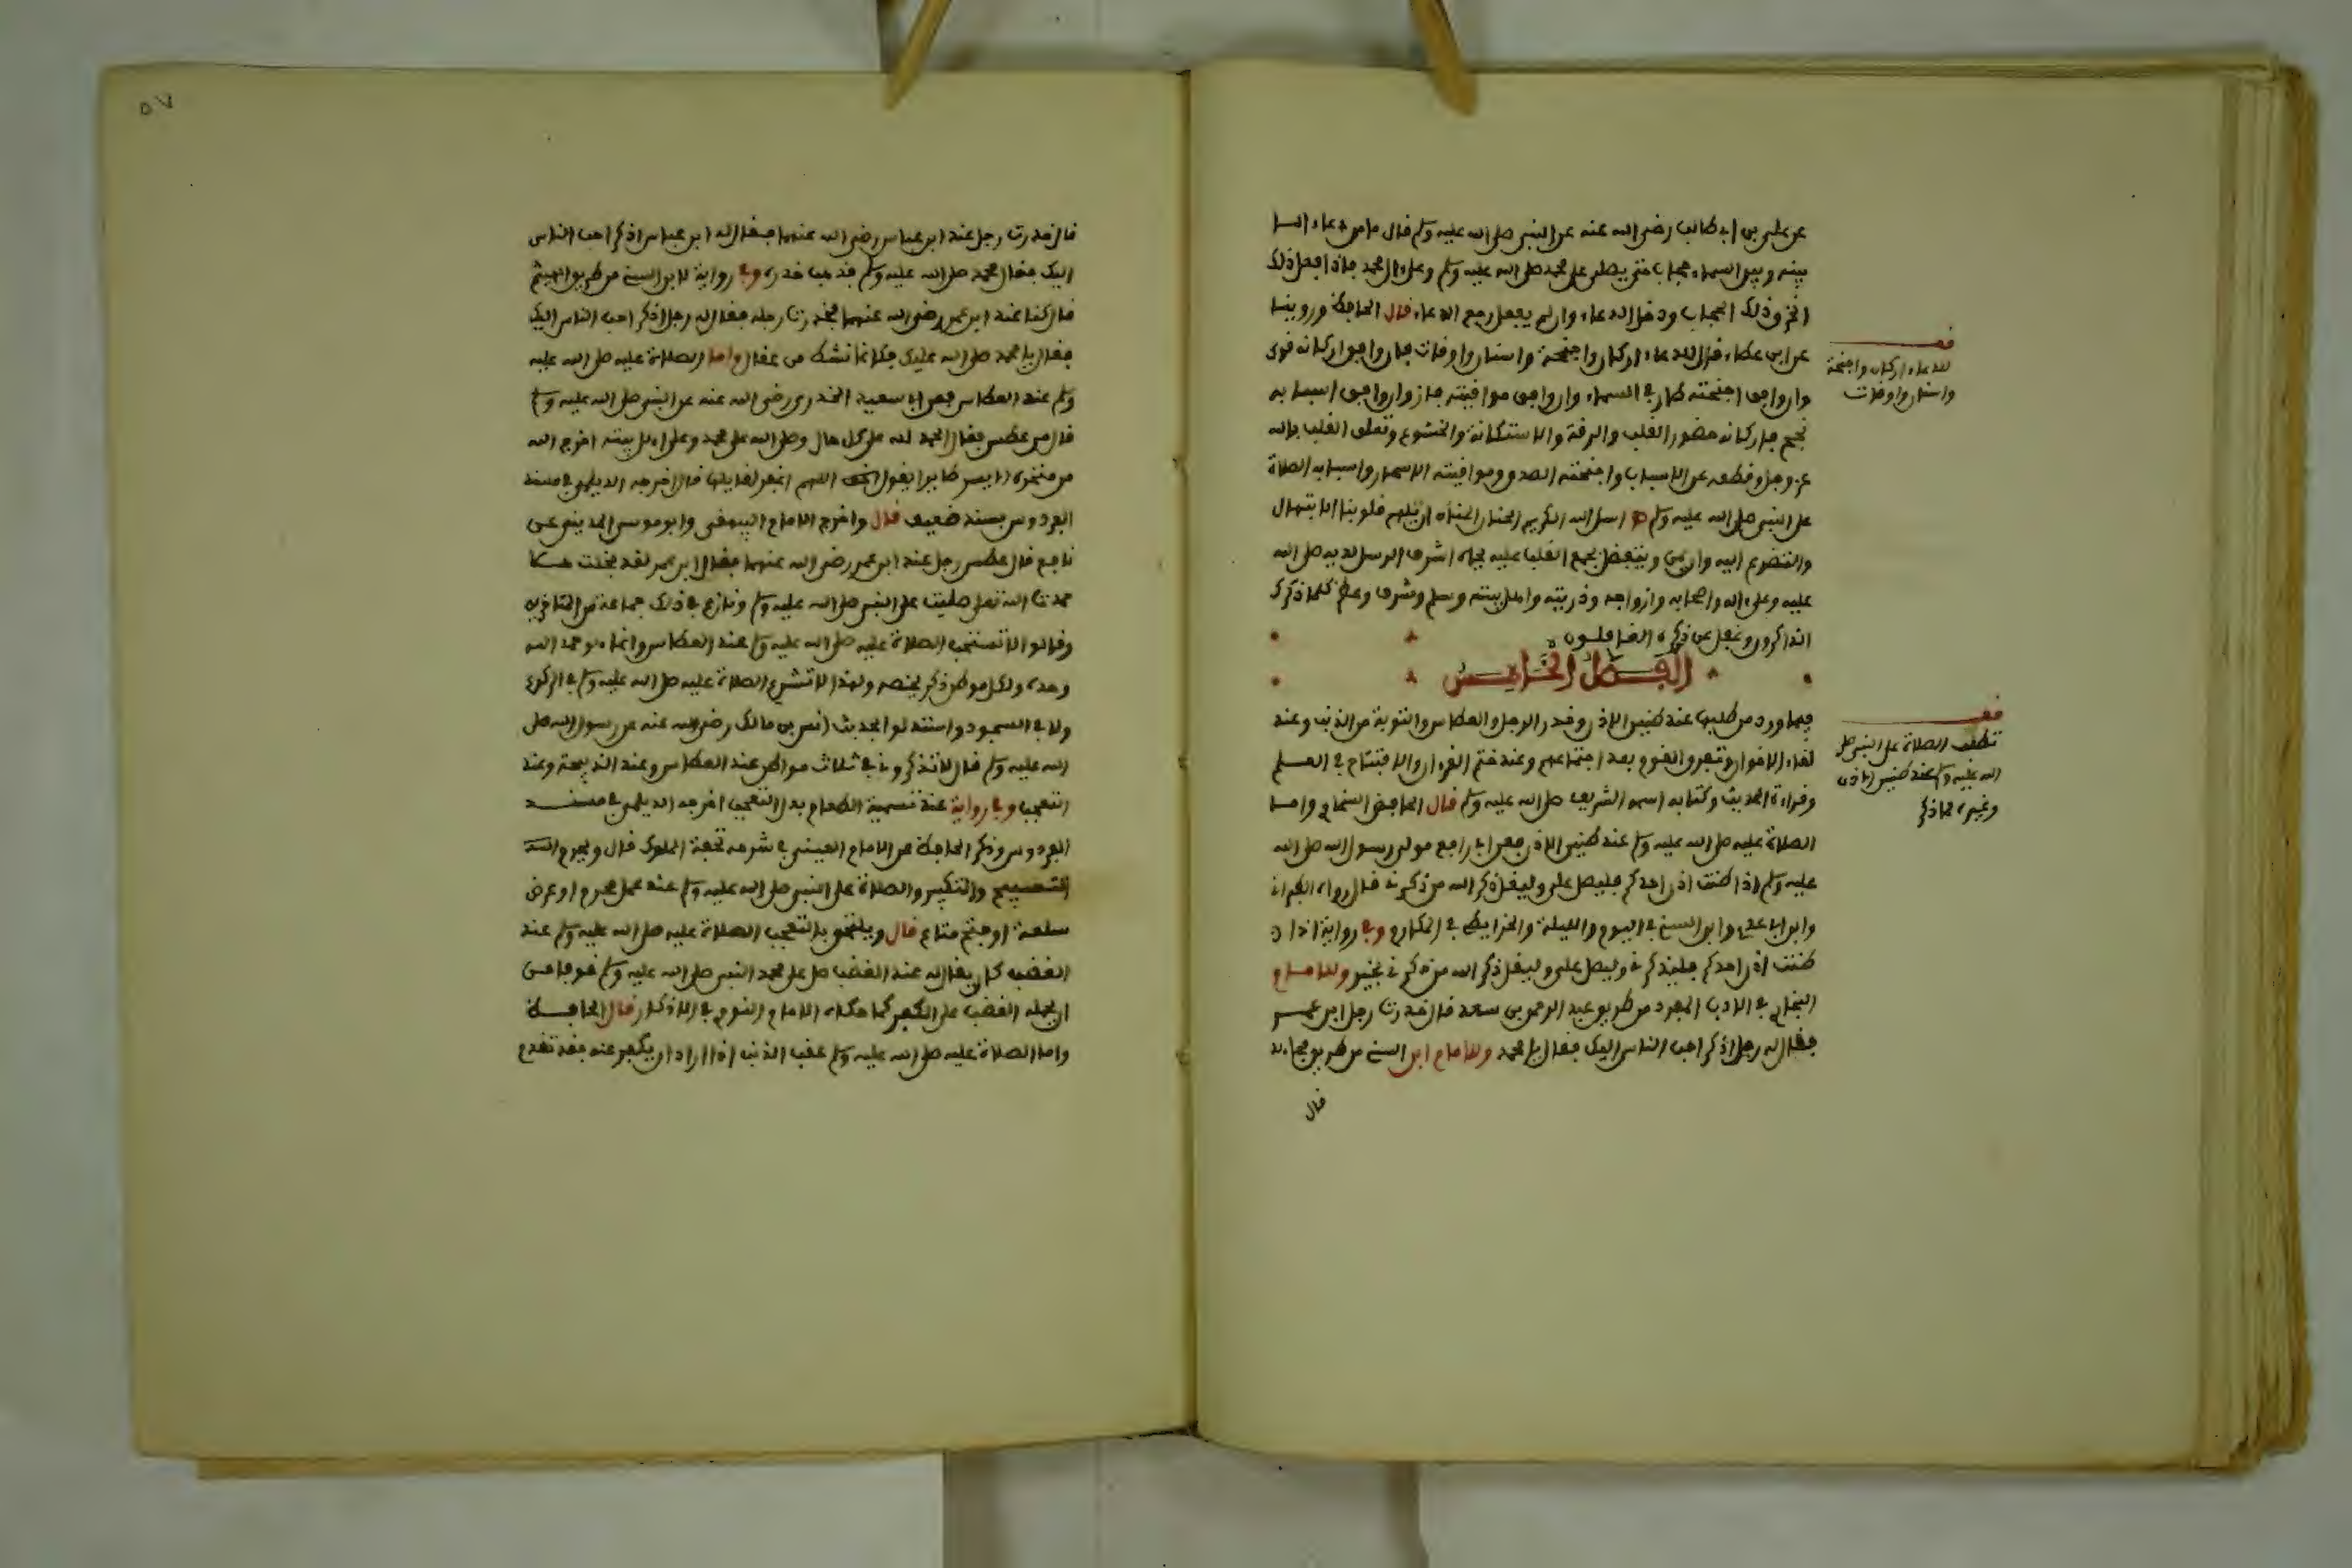 عن علي بن أبي طالب رضي الله عنه عن النبي صلى الله عليه وسلم قال ما من دعاء الا
بينه وبين السماء حجاب حتى يصلى على محمد صلى الله عليه وسلم وعلى ءال محمد فاذا فعل ذلك
انخرق ذلك الحجاب ودخل الدعاء وان لم يفعل رجع الدعاء قال الحافظ وروينا
عن ابن عطاء قال للدعاء اركان واجنحة واسباب واوقات فان وافق اركانه قوي
وان وافق اجنحته طار في السماء وان وافق مواقيته فاز وان وافق اسبابه
نجح فاركانه حضور القلب والرقة والاستكانة والخشوع وتعلق القلب بالله
عز وجل وقطعه عن الاسباب واجنحته الصدق ومواقيته الاسحار واسبابه الصلاة
على النبي صلى الله عليه وسلم اسأل الله الكريم الحنان المنان ان يلهم قلوبنا الابتهال
والتضرع اليه وان يمن ويتفضل بجمع القلب عليه بجاه اشرف الرسل لديه صلى الله
عليه وعلى ءاله واصحابه وازواجه وذريته واهل بيته وسلم وشرف وعظم كلما ذكرك
الذاكرون وغفل عن ذكره الغافلون
الفصل الخامس
فيما ورد من طلبها عند طنين الاذن وخدر الرجل والعطاس والتوبة من الذنب وعند
لقاء الاخوان وتفرق القوم بعد اجتماعهم وعند ختم القرءان والافتتاح في العلم
وقراءة الحديث وكتابه اسمه الشريف صلى الله عليه وسلم قال الحافظ السخاوي واما
الصلاة عليه صلى الله عليه وسلم عند طنين الاذن فعن ابي رافع مولى رسول الله صلى الله
عليه وسلم اذا طنت اذن احدكم فليصل علي وليقل ذكر الله من ذكرني قال رواه الطبراني
وابن ابي عاصم وابن السني في اليوم والليلة والخرايطي في المكارم وفي رواية اذا
طنت اذن احدكم فليذكرني وليصل علي وليقل ذكر الله من ذكرني بخير وللامام
البخاري في الادب المفرد من طريق عبد الرحمن بن سعد قال خدرت رجل ابن عمر
فقال له رجل اذكر احب الناس اليك فقال يا محمد وللامام ابن السني من طريق مجاهد
قال
قف
للدعاء اركان واجنحة
واسباب واوقات
قف
تطلب الصلاة على النبي صلى
الله عليه وسلم عند طنين الاذن
وغيره مما ذكر
٥٧
قال خدرت رجل عند ابن عباس رضي الله عنهما فقال له ابن عباس اذكر احب الناس
اليك فقال محمد صلى الله عليه وسلم فذهب خدره وفي رواية لابن السني من طريق الهيثم
قال كنا عند ابن عمر رضي الله عنهما فخدرت رجله فقال له رجل اذكر احب الناس اليك
فقال يا محمد صلى الله عليك فكانما نشط من عقال واما الصلاة عليه صلى الله عليه
وسلم عند العطاس فعن ابي سعيد الخدري رضي الله عنه عن النبي صلى الله عليه وسلم
قال من عطس فقال الحمد لله على كل حال وصلى الله على محمد وعلى اهل بيته اخرج الله
من منخره الايسر طايرا يقول اللهم اغفر لقايلها قال اخرجه الديلمي في مسند
الفردوس بسند ضعيف قال واخرج الامام البيهقي وابو موسى المديني عن
نافع قال عطس رجل عند ابن عمر رضي الله عنهما فقال ابن عمر لقد بخلت هلا
حمدت الله تعلى صليت على النبي صلى الله عليه وسلم ونازع في ذلك جماعة من المتاخرين
وقالوا لا تستحب الصلاة عليه صلى الله عليه وسلم عند العطاس وانما هو حمد الله
وحده ولكل موطن ذكر يخصه ولهذا لا تشرع الصلاة عليه صلى الله عليه وسلم في الركوع
ولا في السجود واستدلوا بحديث انس بن مالك رضي الله عنه عن رسول الله صلى
الله عليه وسلم قال لا تذكروني في ثلاث مواطن عند العطاس وعند الذبيحة وعند
التعجب وفي رواية عند تسمية الطعام بدل التعجب اخرجه الديلمي في مسند
الفردوس وذكر الحافظ عن الامام العيني في شرحه تحفة الملوك قال ويحرم
التسبيح والتكبير والصلاة على النبي صلى الله عليه وسلم عند عمل محرم او عرض
سلعة او فتح متاع قال ويلتحق بالتعجب الصلاة عليه صلى الله عليه وسلم عند
الغضب كان يقال له عند الغضب صل على محمد النبي صلى الله عليه وسلم خوفا من
ان يحمله الغضب على الكفر كما حكاه الامام النووي في الاذكار قال الحافظ
واما الصلاة عليه صلى الله عليه وسلم عقب الذنب اذا اراد ان يكفر عنه فقد تقدم